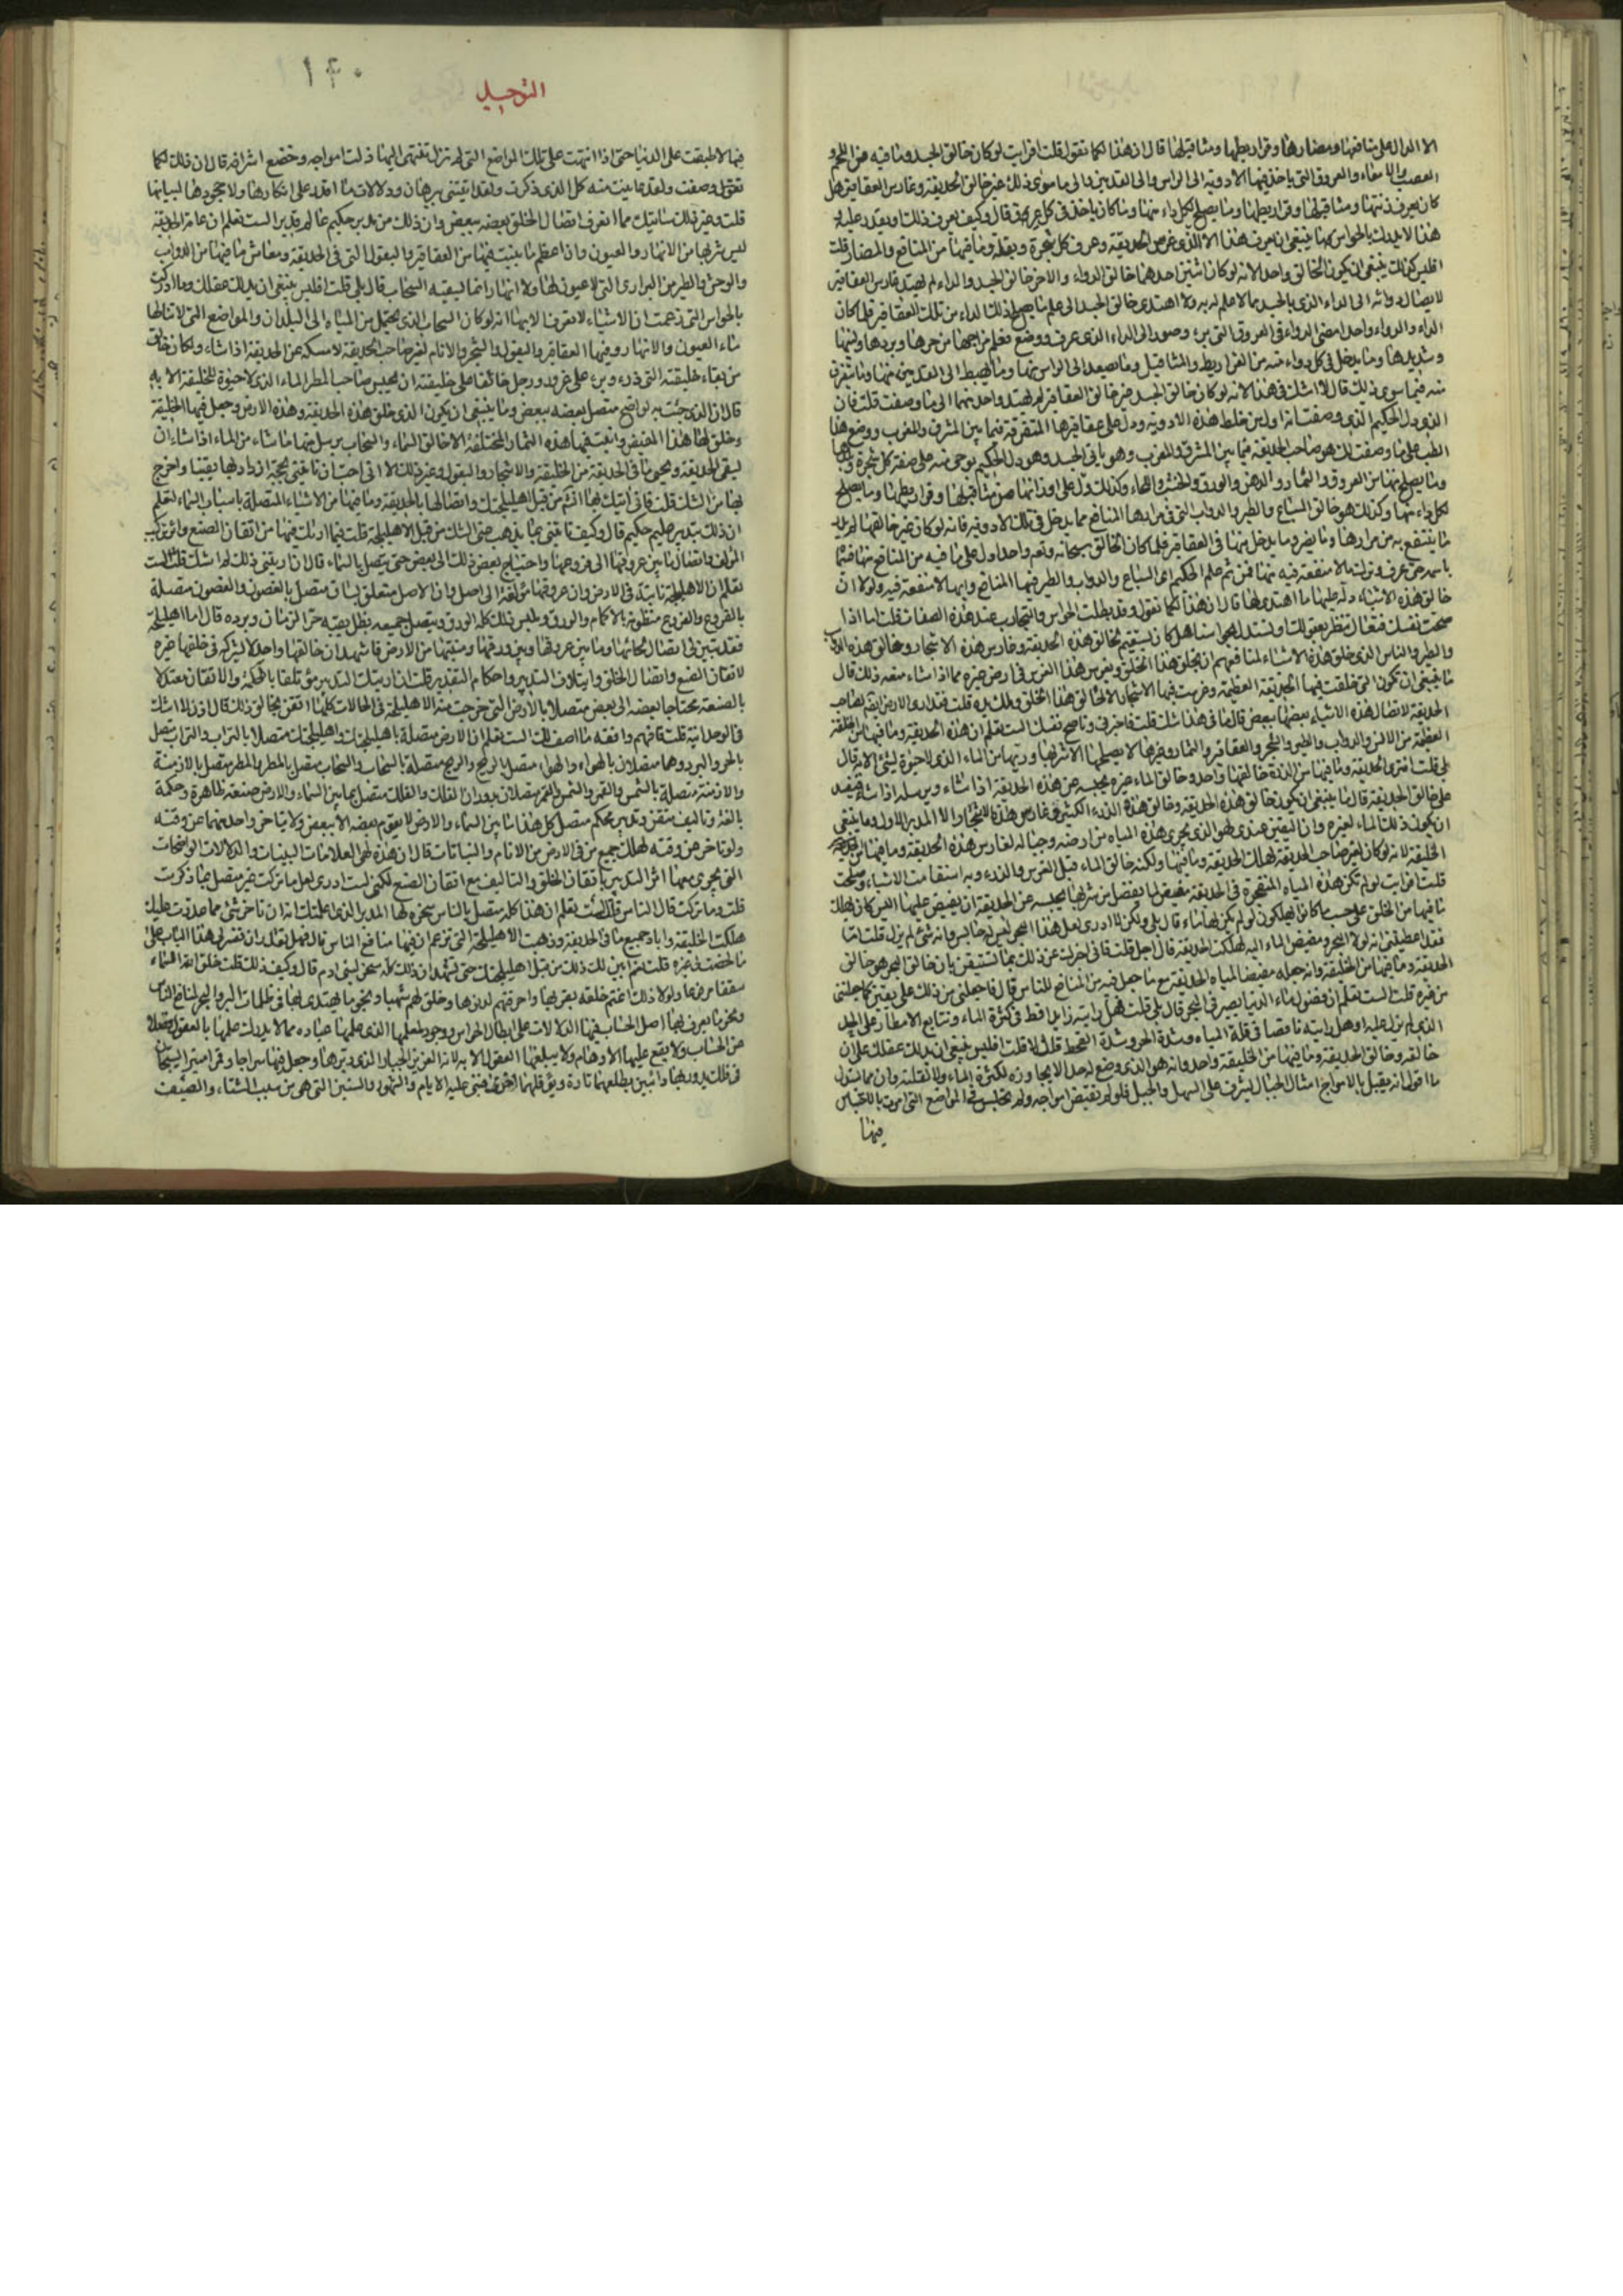 الا الدال على منافعها ومضارها وقراريطها ومثاقيلها قال ان هذا لكما تقول قلت افرايت لو كان خالق الجسد وما فيه من اللحم و
العصب والامعاء والعروق التى ياخذ فيها الادوية الى الراس والى القدمين والى ما سوى ذلك غير خالق الحديقة وغارس العقاقير هل
كان يعرف زنتها ومثاقيلها وقراريطها وما يصلح لكل داء منها وما كان ياخذ فى كل عرق قال وكيف يعرف ذلك ويقدر عليه و
هذا لا يدرك بالحواس ما ينبغى ان يعرف هذا الا الذى غرس الحديقة وعرف كل شجرة وبقلة وما فيها من المنافع والمضار قلت
افليس كذلك ينبغى ان يكون الخالق واحدا لانه لو كان اثنين احدهما خالق الدواء والاخر خالق الجسد والداء لم يهتد غارس العقاقير
لايصال دوائه الى الداء الذى بالجسد مما لا علم له به ولا اهتدى خالق الجسد الى علم ما يصلح ذلك الداء من تلك العقاقير فلما كان
الداء والدواء واحدا امضى الدواء فى العروق التى برء وصور الى الداء الذى عرف ووضع فعلم مزاجها من حرها وبردها ولينها
وشديدها وما يدخل فى كل دواء منه من القراريط والمثاقيل وما يصعد الى الراس منها وما يهبط الى القدمين منها وما يتفرق
منه فيما سوى ذلك قال لا اشك فى هذا لانه لو كان خالق الجسد غير خالق العقاقير لم يهتد واحد منهما الى ما وصفت قلت فان
الذى دل الحكيم الذى وصفت انه اول من خلط هذه الادوية ودل على عقاقيرها المتفرقة فيما بين المشرق والمغرب ووضع هذا
الطب على ما وصفت لك هو صاحب الحديقة فيما بين المشرق والمغرب وهو بانى الجسد وهو دل الحكيم بوحى منه على صفة كل شجرة وبلدها
وما يصلح منها من العروق والثمار والدهن والورق والخشب واللحاء وكذلك دل على اوزانها من مثاقيلها وقراريطها وما يصلح
لكل داء منها وكذلك هو خالق السباع والطير والدواب التى فى مرارها المنافع مما يدخل فى تلك الادوية فانه لو كان غير خالقها لم يدر
ما ينتفع به من مرارها وما يضر وما يدخل منها فى العقاقير فلما كان الخالق سبحانه وتعه واحدا دل على ما فيه من المنافع منها فسماه
باسمه حتى عرف وترك ما لا منفعة فيه منها فمن ثم علم الحكيم اى السباع والدواب والطير فيها المنافع وايها لا منفعة فيه ولولا ان
خالق هذه الاشياء دله عليها ما اهتدى لها قال ان هذا لكما تقول وقد بطلت الحواس والتجارب عند هذه الصفات قلت اما اذا
صحت نفسك فتعال ننظر بعقولنا ونستدل بحواسنا هل كان يستقيم لخالق هذه الحديقة وغارس هذه الاشجار وخالق هذه الدواب
والطير والناس الذى خلق هذه الاشياء لمنافعهم ان يخلق هذا الخلق ويغرس هذا الغرس فى ارض غيره مما اذا شاء منعه ذلك قال
ما ينبغى ان تكون التى خلقت فيها الحديقة العظيمة وغرست فيها الاشجار الا لخالق هذا الخلق وملك يده قلت فقد ارى الارض ايضا لصاحب
الحديقة لاتصال هذه الاشياء بعضها ببعض قال ما فى هذا شك قلت فاخبرنى وناصح نفسك الست تعلم ان هذه الحديقة وما فيها من الخلقة
العظيمة من الانس والدواب والطير والشجر والعقاقير والثمار وغيرها لا يصلحها الا شربها وريها من الماء الذى لا حيوة لشئ الا به قال
بلى قلت افترى الحديقة وما فيها من الذرء خالقها واحد وخالق الماء غيره يحبسه عن هذه الحديقة اذا شاء ويرسله اذا شاء فيفسد
على خالق الحديقة قال ما ينبغى ان يكون خالق هذه الحديقة وخالق هذا الذرء الكثير وغارس هذه الاشجار الا المدبر الاول وما ينبغى
ان يكون ذلك الماء لغيره وان اليقين عندى لهو الذى يجرى هذه المياه من ارضه وجباله لغارس هذه الحديقة وما فيها من
الخليقة لانه لو كان لغير صاحب الحديقة لهلك الحديقة وما فيها ولكنه خالق الماء قبل الغرس والذرء وبه استقامت الاشياء وصلحت
قلت افرايت لو لم تكن هذه المياه المنفجرة فى الحديقة مغيض لما يفضل من شربها يحبسه عن الحديقة ان يفيض عليها اليس كان يهلك
ما فيها من الخلق على حسب ما كانوا يهلكون لو لم يكن لها ماء قال بلى ولكن لا ادرى لعل هذا البحر ليس له حابس وانه شئ لم يزل قلت اما
فقد اعطيتنى انه لولا البحر ومغيض الماء اليه لهلكت الحديقة قال اجل قلت فانى اخبرك عن ذلك بما تستيقن بان خالق البحر هو خالق
الحديقة وما فيها من الخليقة وانه جعله مغيضا لمياه الحديقة مع ما جعل فيه من المنافع للناس قال فاجعلنى من ذلك على يقين كما جعلتنى
من غيره قلت الست تعلم ان فضول ماء الدنيا يصير فى البحر قال بلى قلت فهل رايته زايدا قط فى كثرة الماء وتتابع الامطار على الحد
الذى لم يزل عليه او هل رايته ناقصا فى قلة المياه وشدة الحر وشدة القحط قال لا قلت افليس ينبغى ان يدلك عقلك على ان
خالقه وخالق الحديقة وما فيها من الخليقة واحد وانه هو الذى وضع له حدا لا يجاوزه لكثرة الماء ولا لقلته وان مما يستدل
ما اقول انه يقبل بالامواج امثال الجبال يشرف على السهل والجبل فلو لم تقبض امواجه ولم تحبس فى المواضع التى امرت بالاحتباس
فيها
١٤٠
التوحيد
فيها لاطبقت على الدنيا حتى اذا انتهت على تلك المواضع التى لم تزل تنتهى اليها ذلت امواجه وخضع اشرافه قال ان ذلك لكما
تقول وصفت ولقد عاينت منه كل الذى ذكرت ولقد اتيتنى ببرهان ودلالات ما اقدر على انكارها ولا جحودها لبيانها
قلت وغير ذلك ساتيك مما تعرف اتصال الخلق بعضه ببعض وان ذلك من مدبر حكيم عالم قدير الست تعلم ان عامة الحديقة
ليس شربها من الانهار والعيون وان اعظم ما ينبت فيها من العقاقير والبقول التى فى الحديقة ومعاش ما فيها من الدواب
والوحش والطير من البرارى التى لا عيون لها ولا انهار انما يسقيه السحاب قال بلى قلت افليس ينبغى ان يدلك عقلك وما ادركت
بالحواس التى زعمت ان الاشياء لا تعرف الا بها انه لو كان السحاب الذى يحتمل من المياه الى البلدان والمواضع التى لا تنالها
ماء العيون والانهار وفيها العقاقير والبقول والشجر والانام لغير صاحب الحديقة لامسكه عن الحديقة اذا شاء ولكان خالق
من بقاء خليقته التى ذرء وبرء على غرور ووجل خائفا على خليقته ان يحبس صاحب المطر الماء الذى لا حيوة للخليقة الا به
قال ان الذى جئت به لواضح متصل بعضه ببعض وما ينبغى ان يكون الذى خلق هذه الحديقة وهذه الارض وجعل فيها الخليقة
وخلق لها هذا المغيض وانبت فيها هذه الثمار المختلفة الا خالق السماء والسحاب يرسل منها ما شاء من الماء اذا شاء ان
يسقى الحديقة ويحيى ما فى الحديقة من الخليقة والاشجار والبقول وغير ذلك الا انى احب ان تاتينى بحجة ازداد بها يقينا واخرج
بها من الشك قلت فانى اتيك بها انشم من قبل اهليلجتك واتصالها بالحديقة وما فيها من الاشياء المتصلة باسباب السماء لتعلم
ان ذلك بتدبير عليم حكيم قال وكيف تاتينى بما يذهب عنى الشك من قبل الاهليلجة قلت فيما اريك فيها من اتقان الصنع واثر تركيب
المؤلف واتصال ما بين عروقها الى فروعها واحتياج بعض ذلك الى بعض حتى يتصل بالسماء قال ان اريتنى ذلك لم اشك قلت الست
تعلم ان الاهليلجة نابتة فى الارض وان عروقها مؤلفة الى اصل وان الاصل متعلق بساق متصل بالغصون والغصون متصلة
بالفروع والفروع منظومة بالاكمام والورق وملبس ذلك كله الورق ويتصل جميعه بظل يقيه حر الزمان وبرده قال اما الاهليلجة
فقد تبين لى اتصال لحائها وما بين عروقها وبين ورقها ومنبتها من الارض فاشهد ان خالقها واحد لا يشركه فى خلقها غيره
لاتقان الصنع واتصال الخلق وايتلاف التدبير واحكام التقدير قلت ان اريتك التدبير مؤتلفا بالحكمة والاتقان معتدلا
بالصنعة محتاجا بعضه الى بعض متصلا بالارض التى خرجت منه الاهليلجة فى الحالات كلها اتقر بخالق ذلك قال اذن لا اشك
فى الوحدانية قلت فافهم وافقه ما اصف لك الست تعلم ان الارض متصلة باهليلجتك واهليلجتك متصلة بالتراب والتراب متصل
بالحر والبرد وهما متصلان بالهواء والهواء متصل بالريح والريح متصلة بالسحاب والسحاب متصل بالمطر والمطر متصل بالازمنة
والازمنة متصلة بالشمس والقمر والشمس والقمر متصلان بدوران الفلك والفلك متصل بما بين السماء والارض صنعة ظاهرة وحكمة
بالغة وتاليف متقن وتدبير محكم متصل كل هذا ما بين السماء والارض لا يقوم بعضه الا ببعض ولا يتاخر واحد منهما عن وقته
ولو تاخر عن وقته لهلك جميع من فى الارض من الانام والنباتات قال ان هذه لهى العلامات البينات والدلالات الواضحات
التى يجرى معها اثر التدبير باتقان الخلق والتاليف مع اتقان الصنع لكنى لست ادرى لعل ما تركت غير متصل بما ذكرت
قلت وما تركت قال الناس قلت الست تعلم ان هذا كله متصل بالناس سخره لها المدبر الذى اعلمتك انه ان تاخر شئ مما عددت عليك
هلكت الخليقة وباد جميع ما فى الحديقة وذهبت الاهليلجة التى تزعم ان فيها منافع الناس قال فهل تقدر ان تفسر لى هذا الباب على
ما لخصت لى غيره قلت نعم ابين لك ذلك من قبل اهليلجتك حتى تشهد ان ذلك كله سخر لبنى ادم قال وكيف ذلك قلت خلق الله السماء
سقفا مرفوعا ولولا ذلك اغتم خلقه بقربها واحرقتهم لدنوها وخلق لهم شهبا ونجوما يهتدى بها فى ظلمات البر والبحر لمنافع الناس
ونجوما يعرف بها اصل الحساب فيها الدلالات على ابطال الحواس ووجود معلمها الذى علمها عباده مما لا يدرك علمها بالعقول فضلا
عن الحساب ولا يقع عليها الاوهام ولا يبلغها العقول الا به لانه العزيز الجبار الذى دبرها وجعل فيها سراجا وقمرا منيرا يسبحان
فى فلك يدور بهما دائبين يطلعهما تارة ويؤفلهما اخرى فبنى عليه الايام والشهور والسنين التى هى من سبب الشتاء والصيف